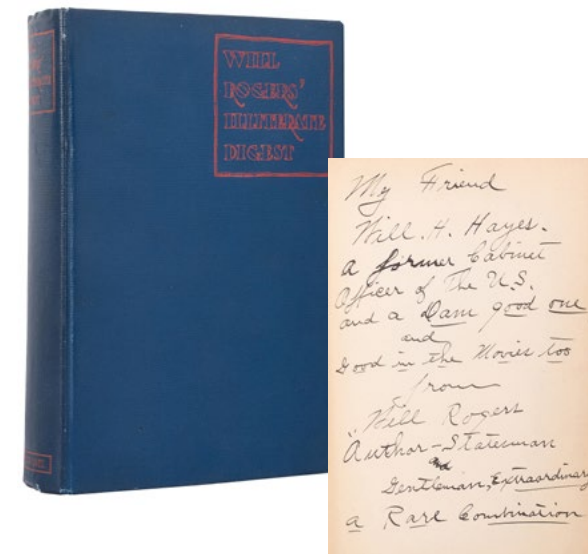 WILL
ROGERS'
ILLITERATE
DIGEST
My Friend
Will. H. Hayes.
a former Cabinet
Officer of The U.S.
and a Dam good one
and
Good in the Movies too
from
Will Rogers
Author-Statesman
and
Gentleman, Extraordinary
a Rare Combination